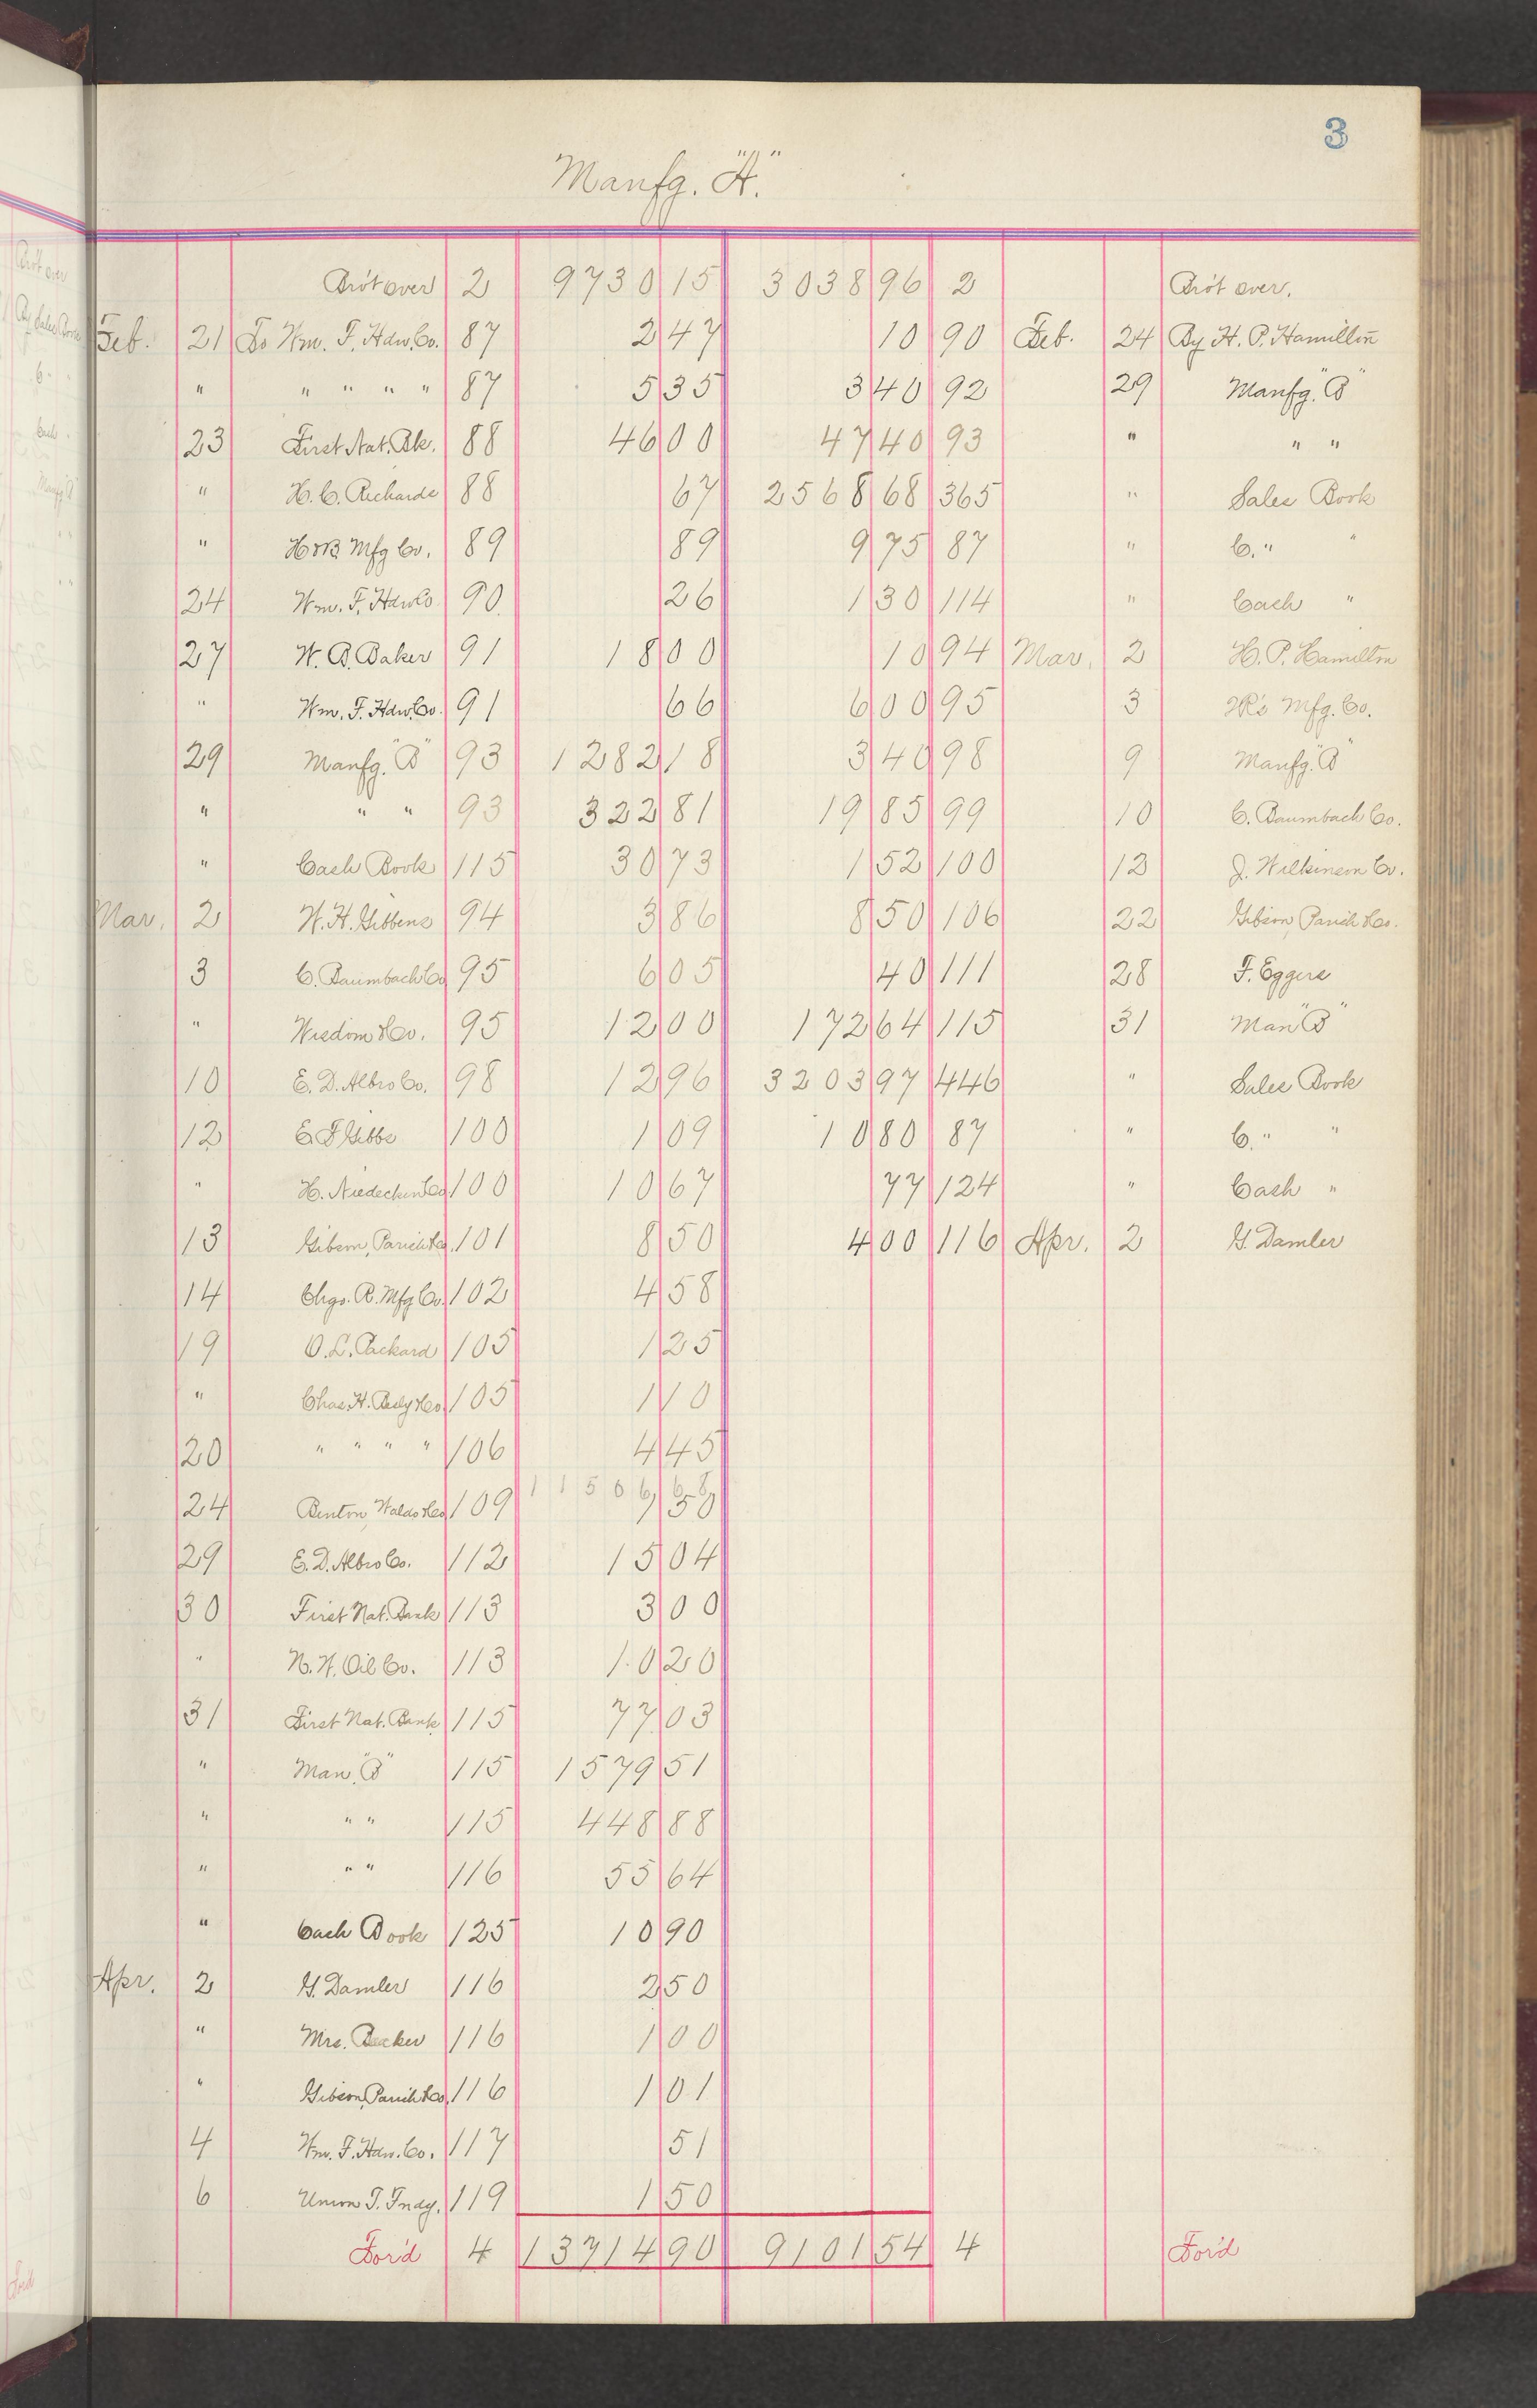 3
Manfg. "A"
Bro't over 2 9730 15 3038 96 2 Bro't over.
Feb. 21 To Wm. F. Hdw. Co. 87 2 47 10 90 Feb. 24 By H. P. Hamilton
" " " " " 87 5 35 3 40 92 29 Manfg. "B"
23 First Nat. Bk. 88 46 00 47 40 93 " " "
" H. C. Richards 88 67 2568 68 365 " Sales Book
" H & B Mfg Co. 89 89 9 75 87 " C. " "
24 Wm. F. Hdw Co. 90 26 1 30 114 " Cash "
27 W. B. Baker 91 18 00 10 94 Mar. 2 H. P. Hamilton
" Wm. F. Hdw. Co. 91 66 6 00 95 3 Mfg. Co.
29 Manfg. "B" 93 1282 18 3 40 98 9 Manfg. "B"
" " " 93 322 81 19 85 99 10 C. Baumbach Co.
" Cash Book 115 30 73 1 52 100 12 J. Wilkinson Co.
Mar. 2 W. H. Gibbens 94 3 86 8 50 106 22 Gibson, Parish & Co.
3 C. Baumbach Co 95 6 05 40 111 28 F. Eggers
" Wisdom & Co. 95 12 00 172 64 115 31 Man "B"
10 E. D. Albro Co. 98 12 96 3203 97 446 " Sales Book
12 E. F. Gibbs 100 1 09 10 80 87 " C. " "
" H. Niedecken Co 100 10 67 77 124 " Cash "
13 Gibson, Parish & Co. 101 8 50 4 00 116 Apr. 2 G. Damler
14 Chgo. R. Mfg Co. 102 4 58
19 O. L. Packard 105 1 25
" Chas. H. Besly & Co. 105 1 10
20 " " " " 106 4 45
11566 68
24 Benton, Waldo & Co 109 9 50
29 E. D. Albro Co. 112 15 04
30 First Nat. Bank 113 3 00
" N. W. Oil Co. 113 10 20
31 First Nat. Bank 115 77 03
" Man. "B" 115 1579 51
" " " 115 448 88
" " " 116 55 64
" Cash Book 125 10 90
Apr. 2 G. Damler 116 2 50
" Mrs. Becker 116 1 00
" Gibson, Parish & Co. 116 1 01
4 Wm. F. Hdw. Co. 117 51
6 Union T. Fndy. 119 1 50
For'd 4 13714 90 9101 54 4 For'd